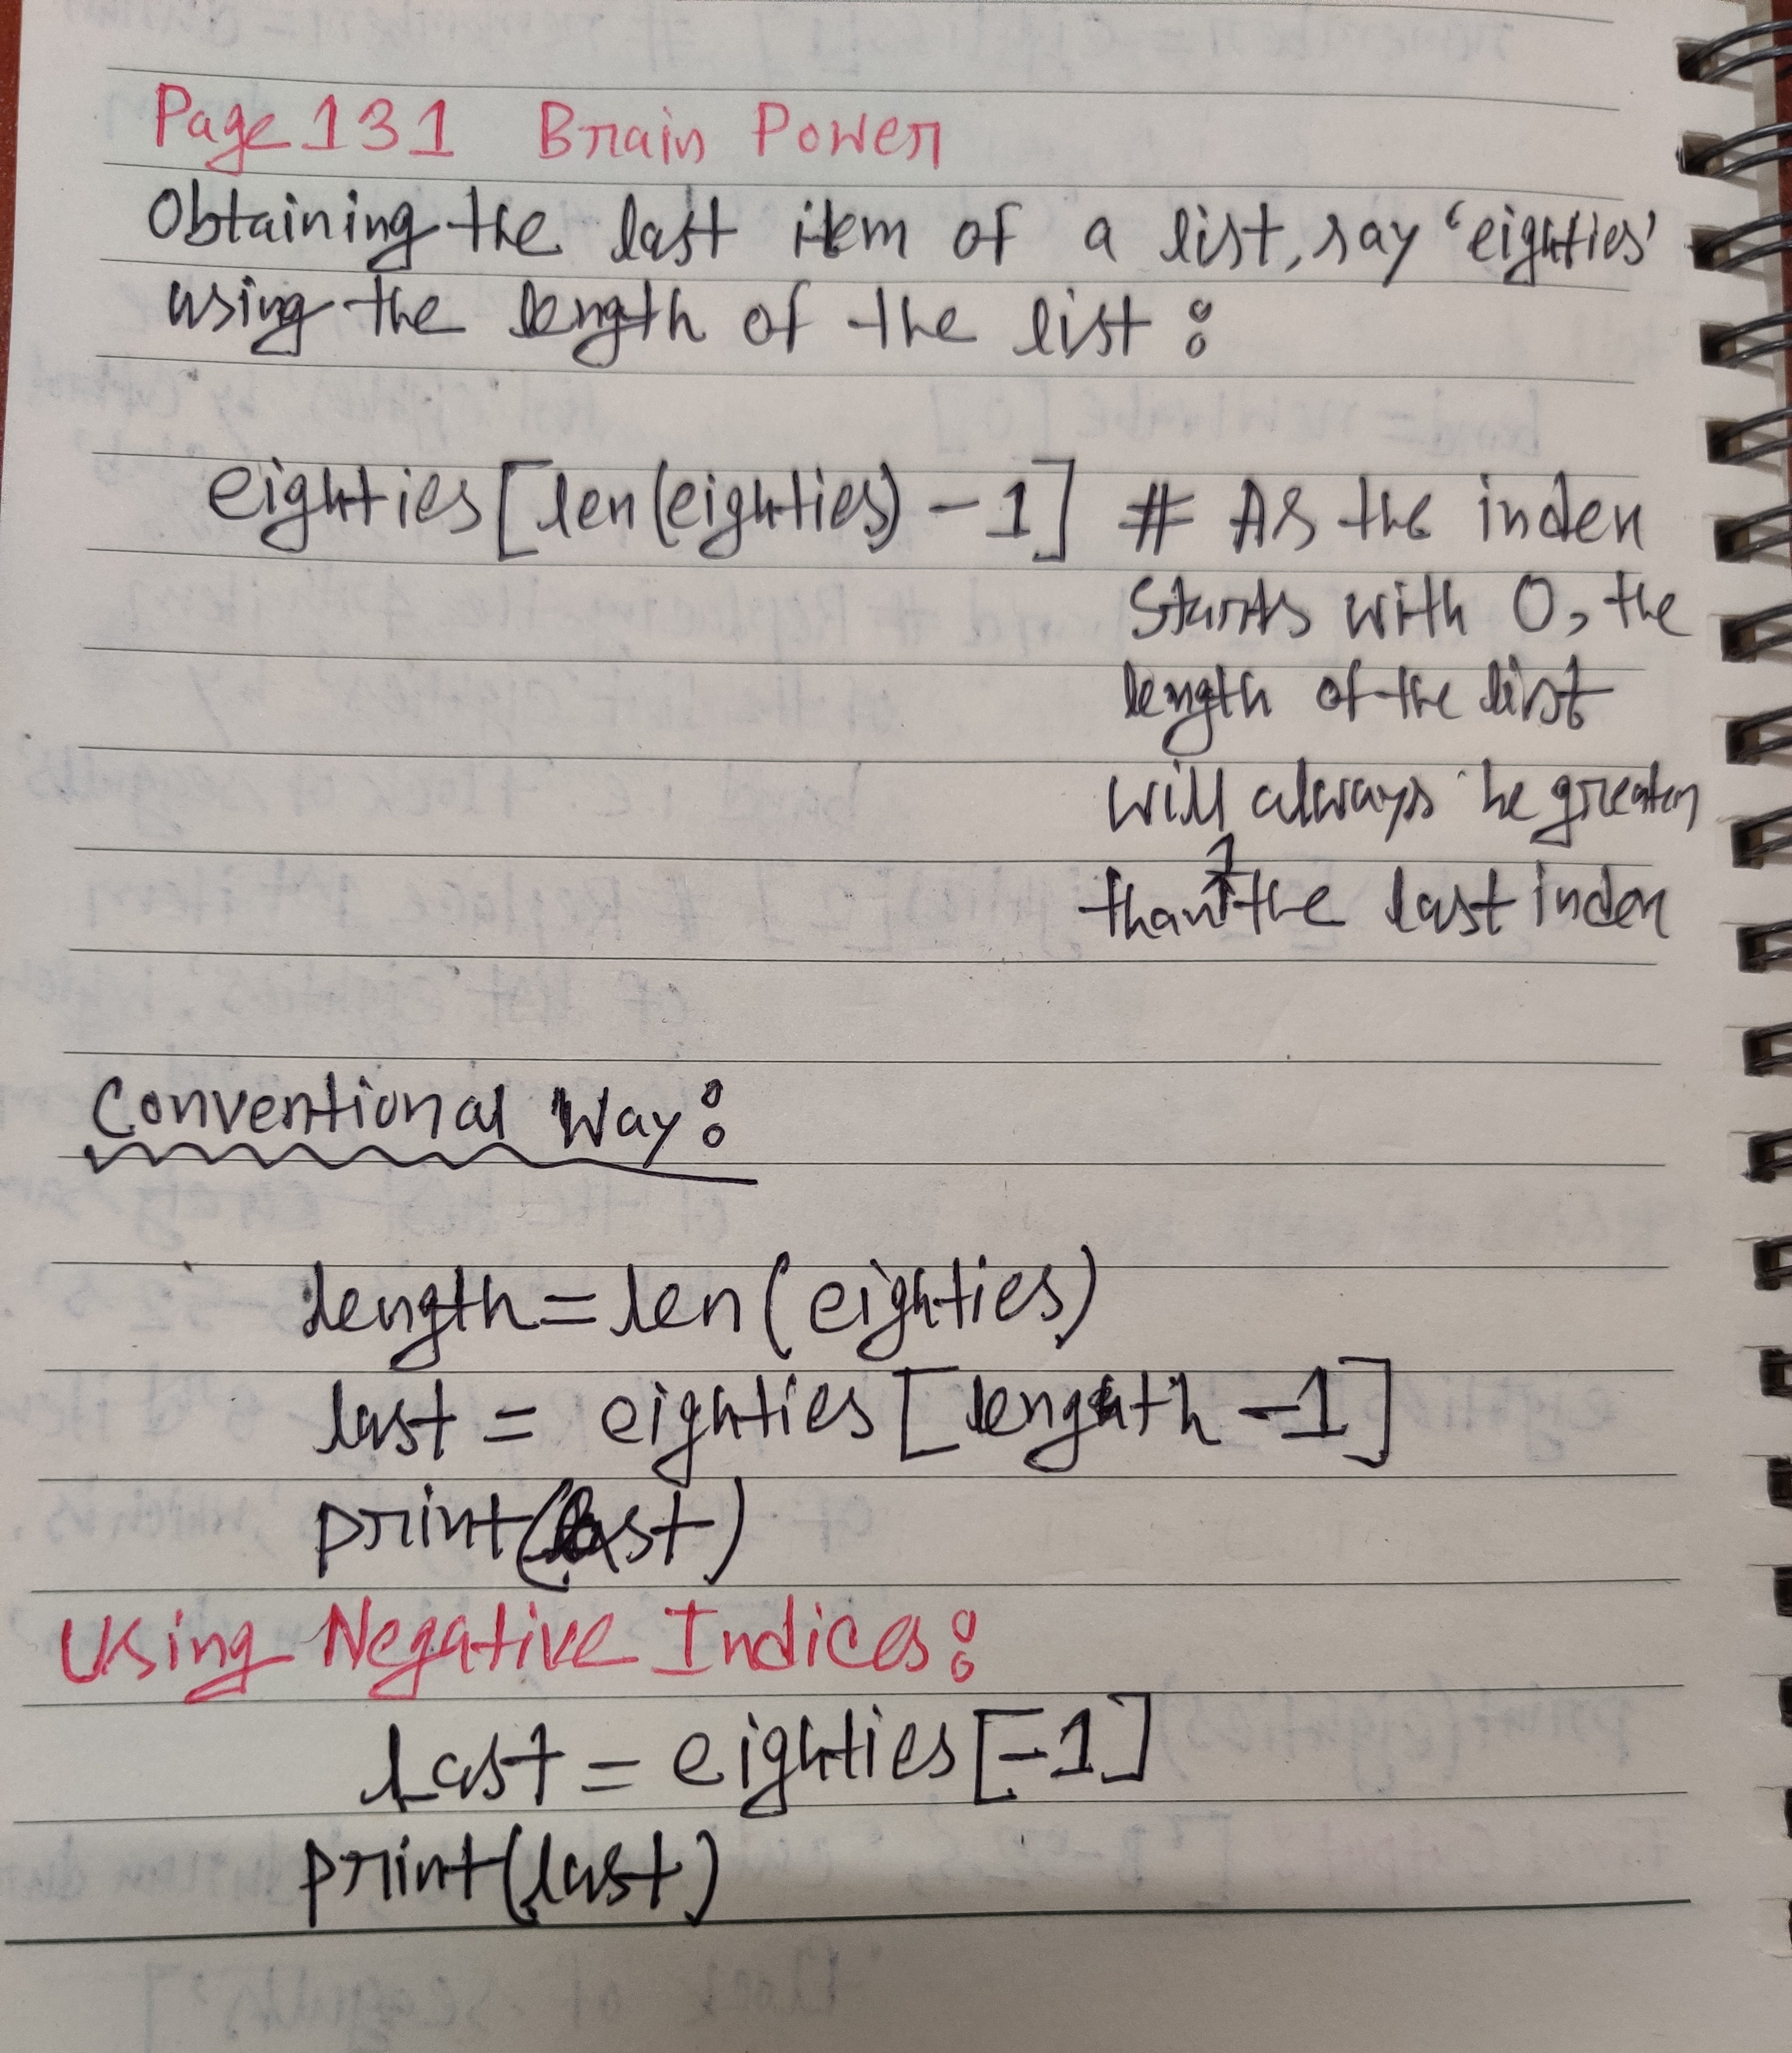 Page 131 Brain Power
Obtaining the last item of a list, say 'eighties'
using the length of the list :
eighties [len(eighties) - 1] # As the index
starts with 0, the
length of the list
will always be greater
than 1 the last index
Conventional Way:
length = len(eighties)
last = eighties [length - 1]
print(last)
Using Negative Indices:
last = eighties [-1]
print(last)